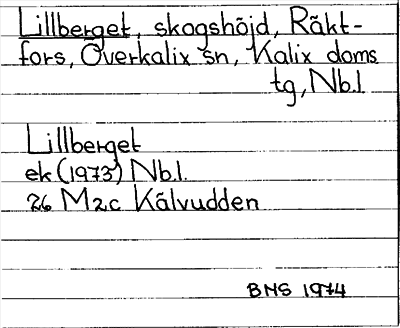 Lillberget, skogshöjd, Räkt-
fors, Överkalix sn, Kalix doms
tg, Nb.l.
Lillberget
ek (1973) Nb.l.
26 M 2c Kälvudden
BNS 1974